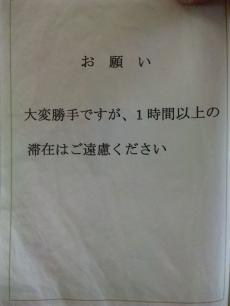 お 願 い
大変勝手ですが、1時間以上の
滞在はご遠慮ください